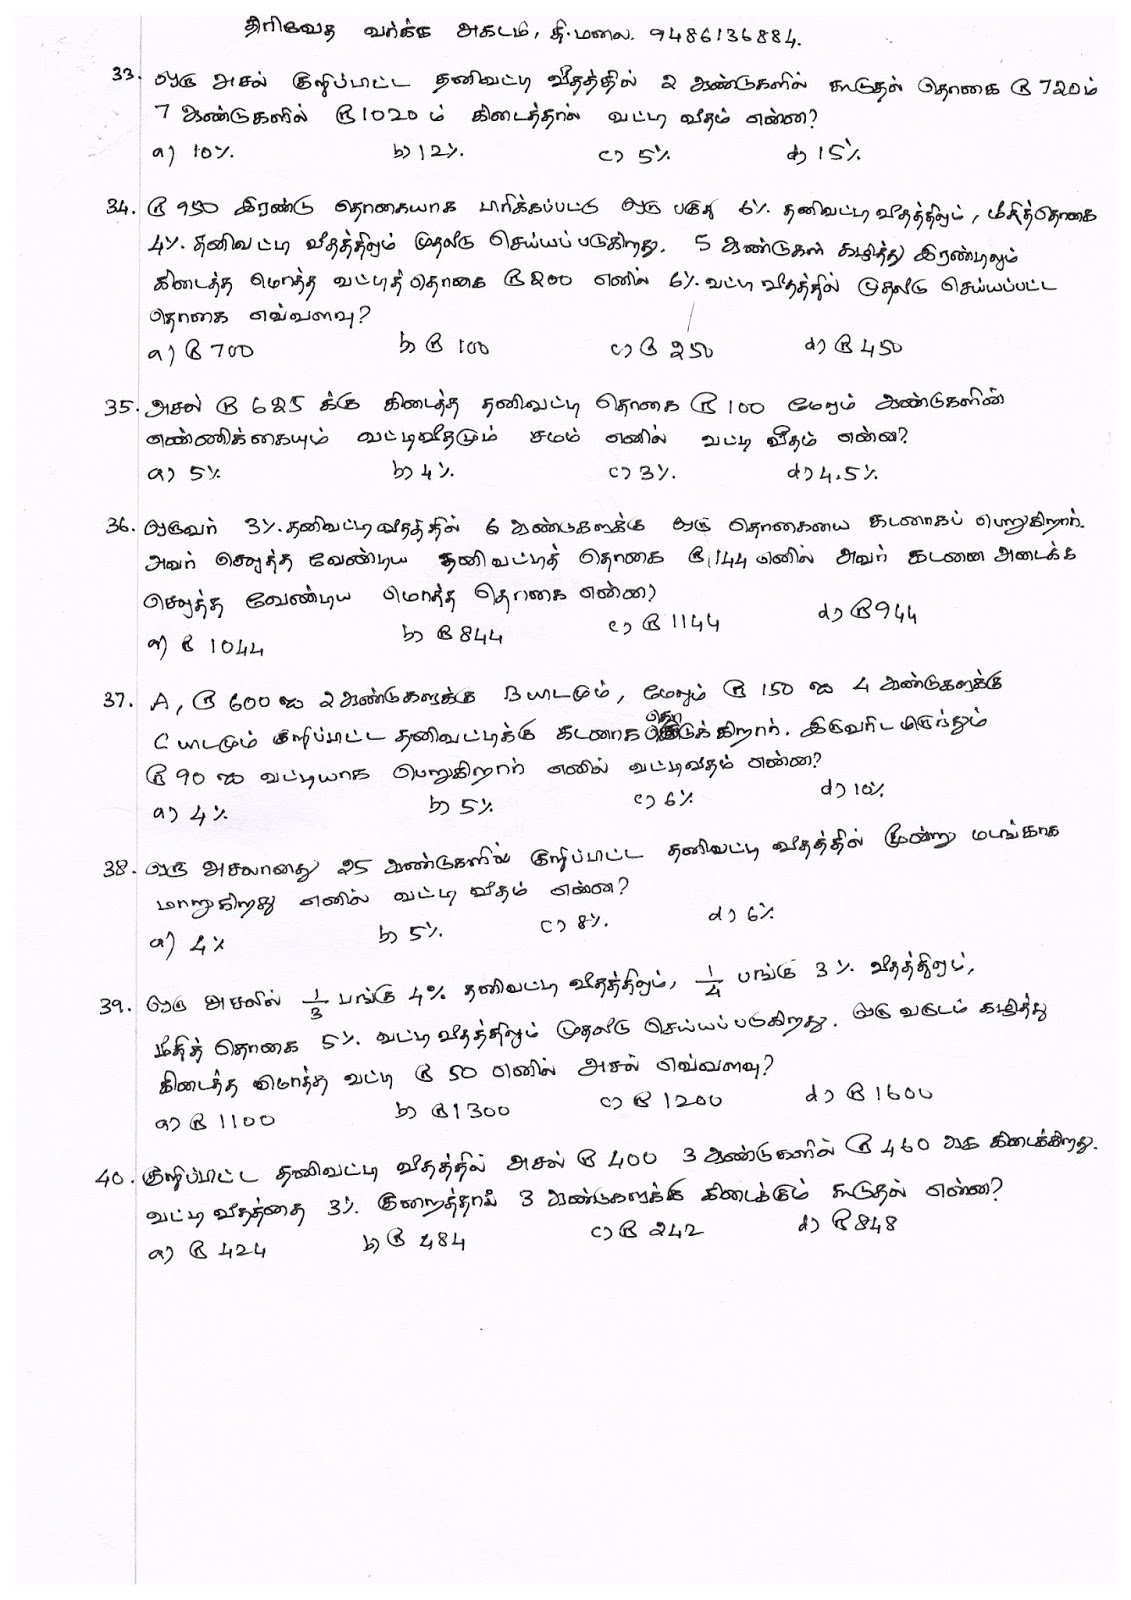 திரிவேத வர்க்க அகடம், தி.மலை. 9486136884.
33. ஒரு அசல் குறிப்பிட்ட தனிவட்டி வீதத்தில் 2 ஆண்டுகளில் கூடுதல் தொகை ரூ 720ம்
7 ஆண்டுகளில் ரூ 1020 ம் கிடைத்தால் வட்டி வீதம் என்ன?
a) 10% b) 12% c) 5% d) 15%
34. ரூ 950 இரண்டு தொகையாக பிரிக்கப்பட்டு ஒரு பகுதி 6% தனிவட்டி வீதத்திலும், மீதித்தொகை
4% தனிவட்டி வீதத்திலும் முதலீடு செய்யப்படுகிறது. 5 ஆண்டுகள் கழித்து இரண்டிலும்
கிடைத்த மொத்த வட்டித் தொகை ரூ 200 எனில் 6% வட்டி வீதத்தில் முதலீடு செய்யப்பட்ட
தொகை எவ்வளவு?
a) ரூ 700 b) ரூ 100 c) ரூ 250 d) ரூ 450
35. அசல் ரூ 625 க்கு கிடைத்த தனிவட்டி தொகை ரூ 100 மேலும் ஆண்டுகளின்
எண்ணிக்கையும் வட்டிவீதமும் சமம் எனில் வட்டி வீதம் என்ன?
a) 5% b) 4% c) 3% d) 4.5%
36. ஒருவர் 3% தனிவட்டி வீதத்தில் 6 ஆண்டுகளுக்கு ஒரு தொகையை கடனாகப் பெறுகிறார்.
அவர் செலுத்த வேண்டிய தனிவட்டித் தொகை ரூ 144 எனில் அவர் கடனை அடைக்க
செலுத்த வேண்டிய மொத்த தொகை என்ன?
a) ரூ 1044 b) ரூ 844 c) ரூ 1144 d) ரூ 944
37. A, ரூ 600 ஐ 2 ஆண்டுகளுக்கு B யிடமும், மேலும் ரூ 150 ஐ 4 ஆண்டுகளுக்கு
C யிடமும் குறிப்பிட்ட தனிவட்டிக்கு கடனாக கொடுக்கிறார். இருவரிடமிருந்தும்
ரூ 90 ஐ வட்டியாக பெறுகிறார் எனில் வட்டிவீதம் என்ன?
a) 4% b) 5% c) 6% d) 10%
38. ஒரு அசலானது 25 ஆண்டுகளில் குறிப்பிட்ட தனிவட்டி வீதத்தில் மூன்று மடங்காக
மாறுகிறது எனில் வட்டி வீதம் என்ன?
a) 4% b) 5% c) 8% d) 6%
39. ஒரு அசலில் 1/3 பங்கு 4% தனிவட்டி வீதத்திலும், 1/4 பங்கு 3% வீதத்திலும்,
மீதித் தொகை 5% வட்டி வீதத்திலும் முதலீடு செய்யப்படுகிறது. ஒரு வருடம் கழித்து
கிடைத்த மொத்த வட்டி ரூ 50 எனில் அசல் எவ்வளவு?
a) ரூ 1100 b) ரூ 1300 c) ரூ 1200 d) ரூ 1600
40. குறிப்பிட்ட தனிவட்டி வீதத்தில் அசல் ரூ 400 3 ஆண்டுகளில் ரூ 460 ஆக கிடைக்கிறது.
வட்டி வீதத்தை 3% குறைத்தால் 3 ஆண்டுகளுக்கு கிடைக்கும் கூடுதல் என்ன?
a) ரூ 424 b) ரூ 484 c) ரூ 242 d) ரூ 848